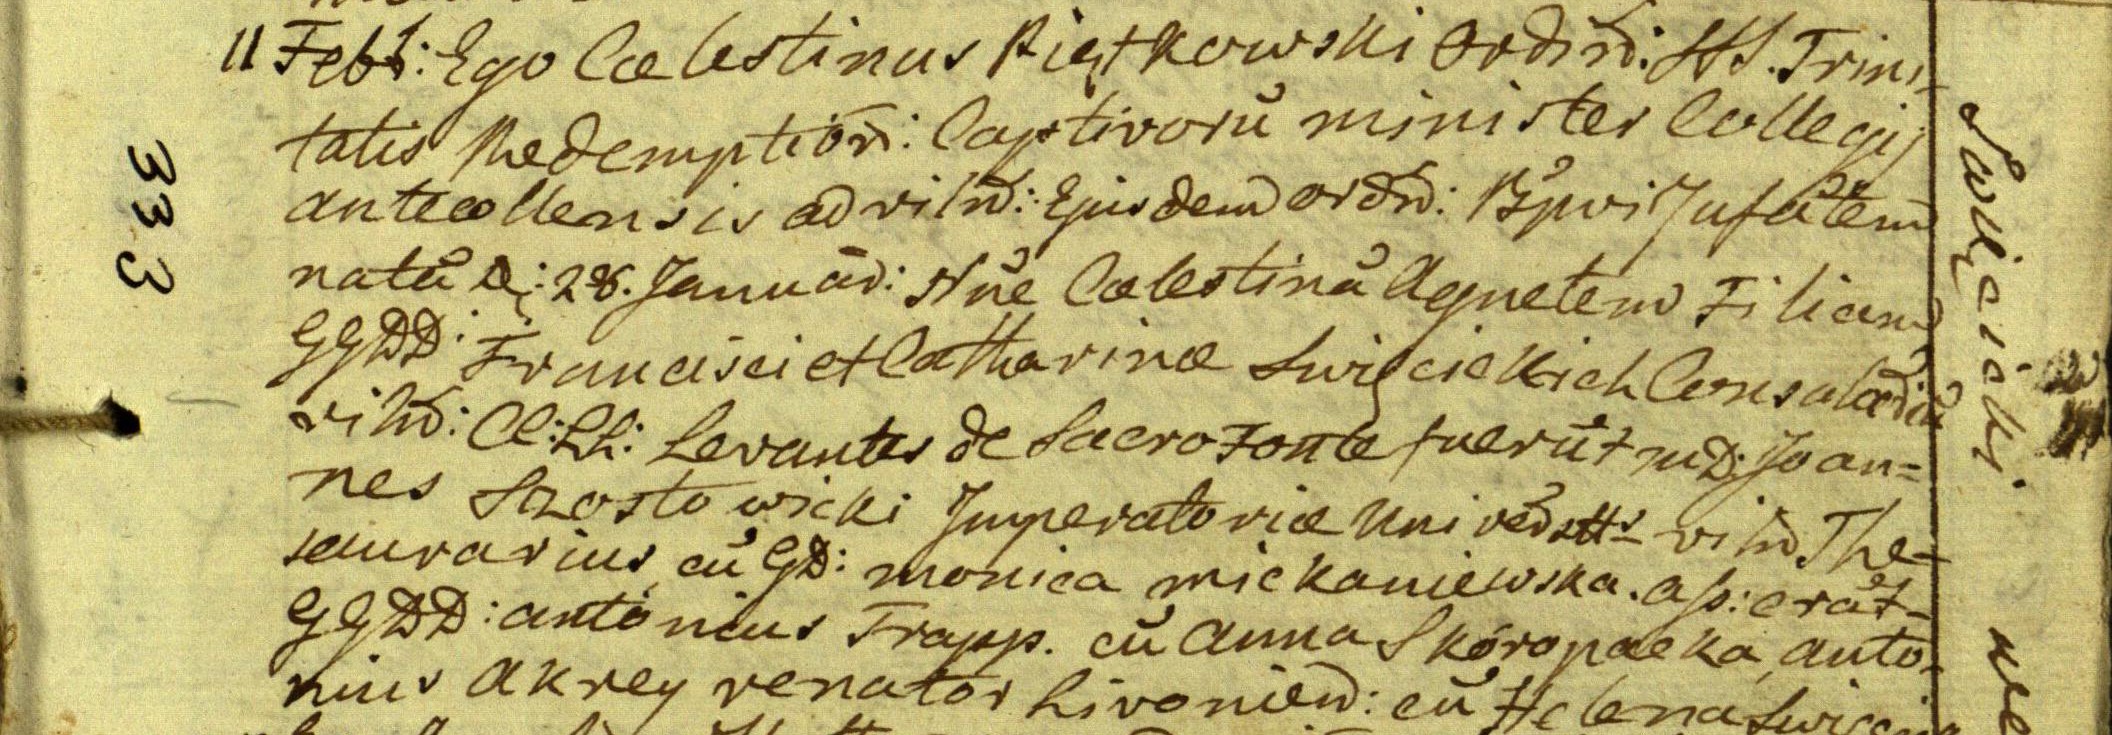 11 Febr: Ego Cælestinus Piętkowski Ordin: SSS. Trini-
tatis Redemption: Captivorũ minister Collegij
antecollensis ad viln: Ejusdem ordn: Bpvi Jnfãtem
natã D: 28. Januar: Nñe Cælestinã Agnetem Filiam
GGDD: Francisci et Catharinæ Swięcickich Consulũ
viln: Cl: LL: Levantes de Sacro Fonte fuerũt MD: Joan=
nes Szostowicki Jmperatoriæ Universtts viln The-
saurarius, cũ GD: Monica Mickaniewska. Ass: erãt-
GGDD: antonius Frapp. cũ Anna Skoropacka, anto-
nius Akrey venator Livonien: cũ Helena Swięcic
333
Swięcicki.